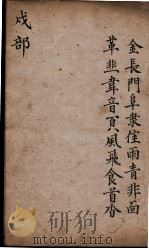 金長門阜隶隹雨青非面
革韭韋音頁風飛食首香
戌部